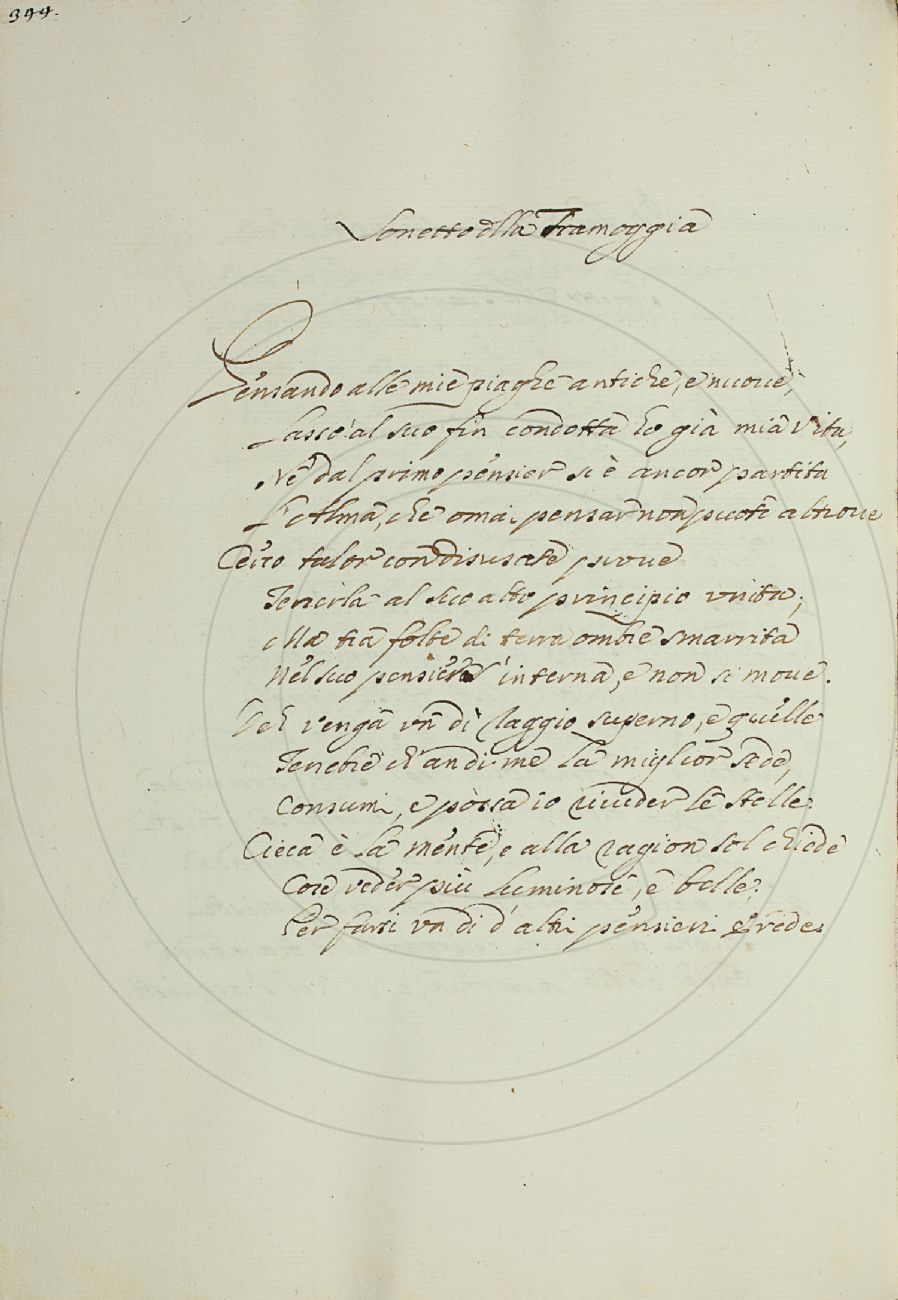 394.
Sonetto dlla Tramoggia
Pensando alle mie piaghe antiche, e nuove,
Lasso! al suo fin condotta ho già mia Vita,
Nè dal primo pensier si è ancor partita
L'Alma, che omai pensar non puote altrove
Cerco talor con disusate prove
Tenerla al suo alto principio unita;
Ma tra folte di terra ombre smarrita
Nel suo pensier s'interna, e non si move.
Deh venga un dì Raggio superno, e quelle
Tenebre ch'andi me la miglior sede,
Consumi, e possa io riveder le stelle.
Cieca è la mente, e alla ragion sol chiede
Cose veder più luminose, e belle;
Per farsi un dì d'altri pensieri erede.